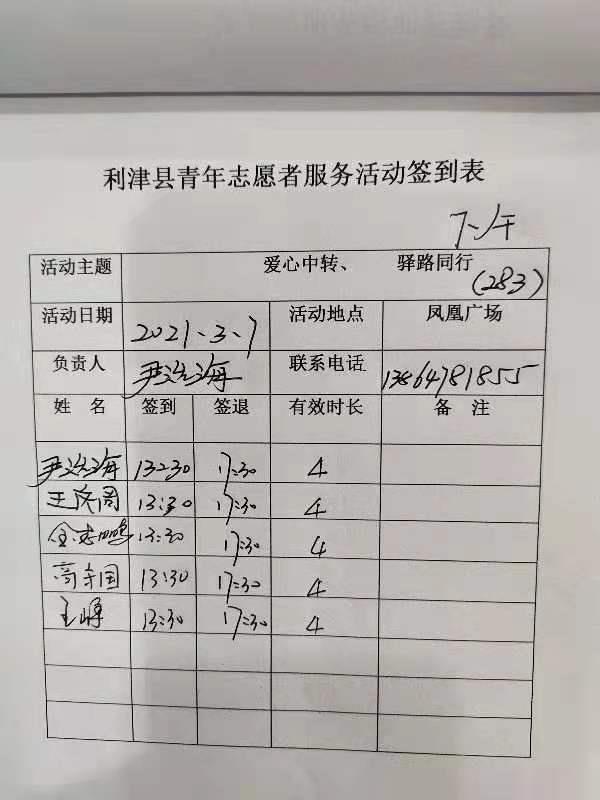 利津县青年志愿者服务活动签到表
下午
活动主题 爱心中转、 驿路同行
(283)
活动日期 2021、3、7 活动地点 凤凰广场
负责人 尹海 联系电话 13864781855
姓 名 签到 签退 有效时长 备 注
尹海 13:30 17:30 4
王周 13:30 17:30 4
13:30 17:30 4
高国 13:30 17:30 4
王峰 13:30 17:30 4